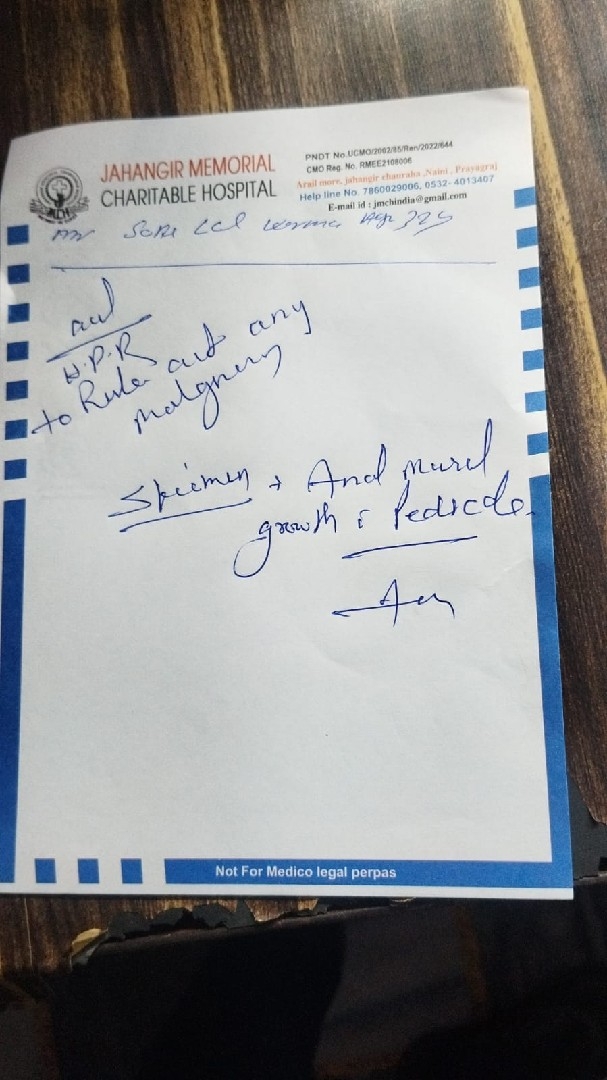 JAHANGIR MEMORIAL
CHARITABLE HOSPITAL
PNDT No.UCMO/2002/85/Ren/2022/644
CMO Reg. No. RMEE2108006
Arail more, jahangir chauraha ,Naini , Prayagraj
Help line No. 7860029006, 0532- 4013407
E-mail id : jmchindia@gmail.com
JMCH
Lal Verma Age 32y
Adv
H.P.R
to Rule out any
Specimen + Anal
growth c Pedicle.
Not For Medico legal perpas